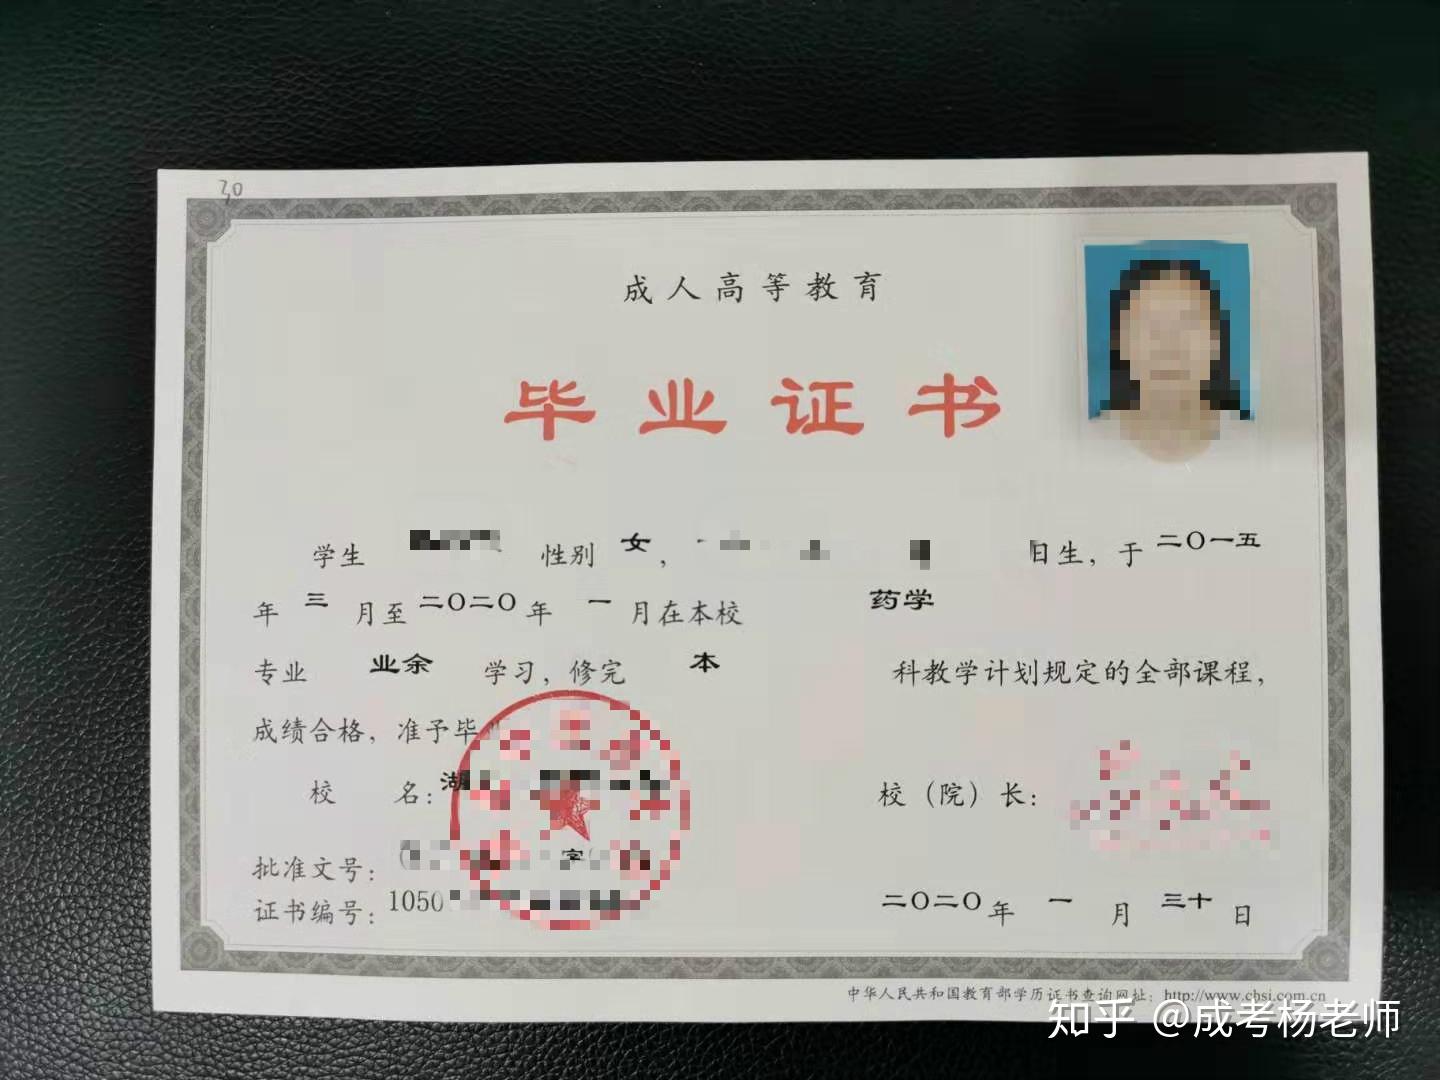 30
成人高等教育
毕业证书
学生 性别 女， 日生，于 二〇一五
年 三 月至 二〇二〇 年 一 月在本校 药学
专业 业余 学习，修完 本 科教学计划规定的全部课程，
成绩合格，准予毕
校 名：湖 校（院）长：
批准文号： 字
证书编号：1050
二〇二〇 年 一 月 三十 日
中华人民共和国教育部学历证书查询网址：http://www.chsi.com.cn
知乎 @成考杨老师